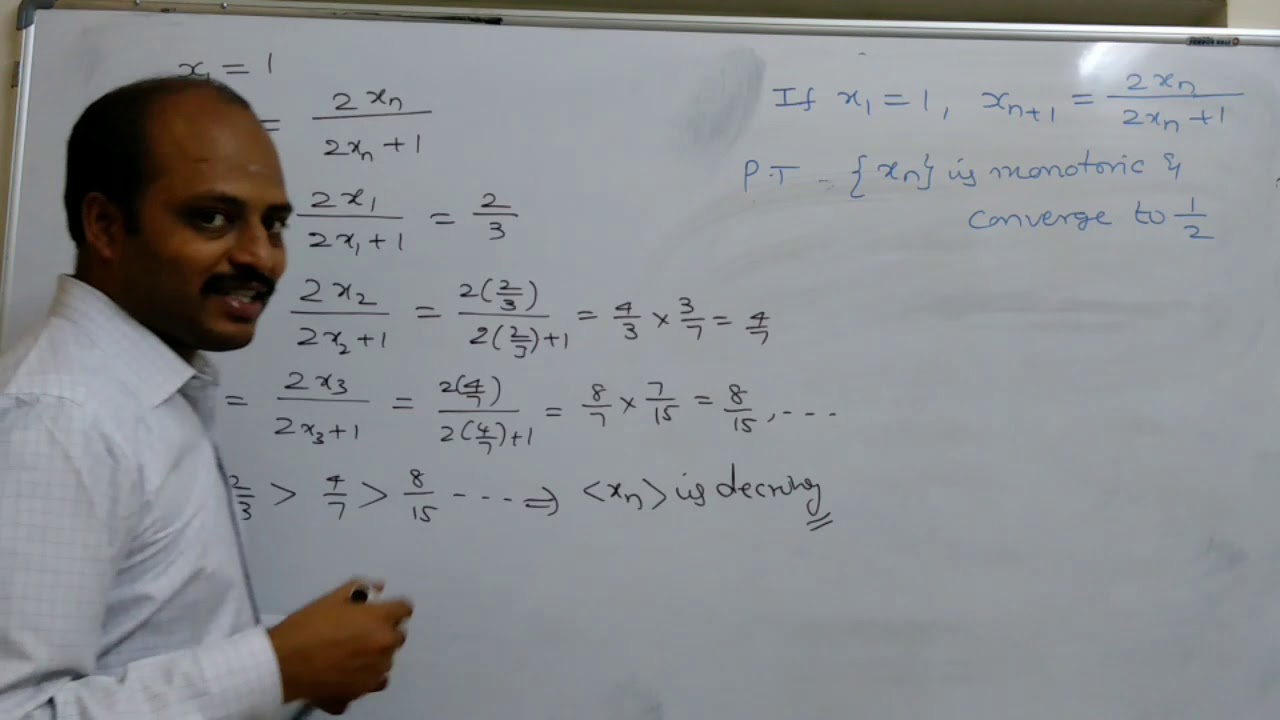 x₁ = 1
= 2xₙ / 2xₙ + 1
2x₁ / 2x₁ + 1 = 2/3
2x₂ / 2x₂ + 1 = 2(2/3) / 2(2/3) + 1 = 4/3 × 3/7 = 4/7
= 2x₃ / 2x₃ + 1 = 2(4/7) / 2(4/7) + 1 = 8/7 × 7/15 = 8/15, ----
2/3 > 4/7 > 8/15 ---- ⇒ <xₙ> is
If x₁ = 1, xₙ₊₁ = 2xₙ / 2xₙ + 1
P.T - {xₙ} is monotoric &
converge to 1/2